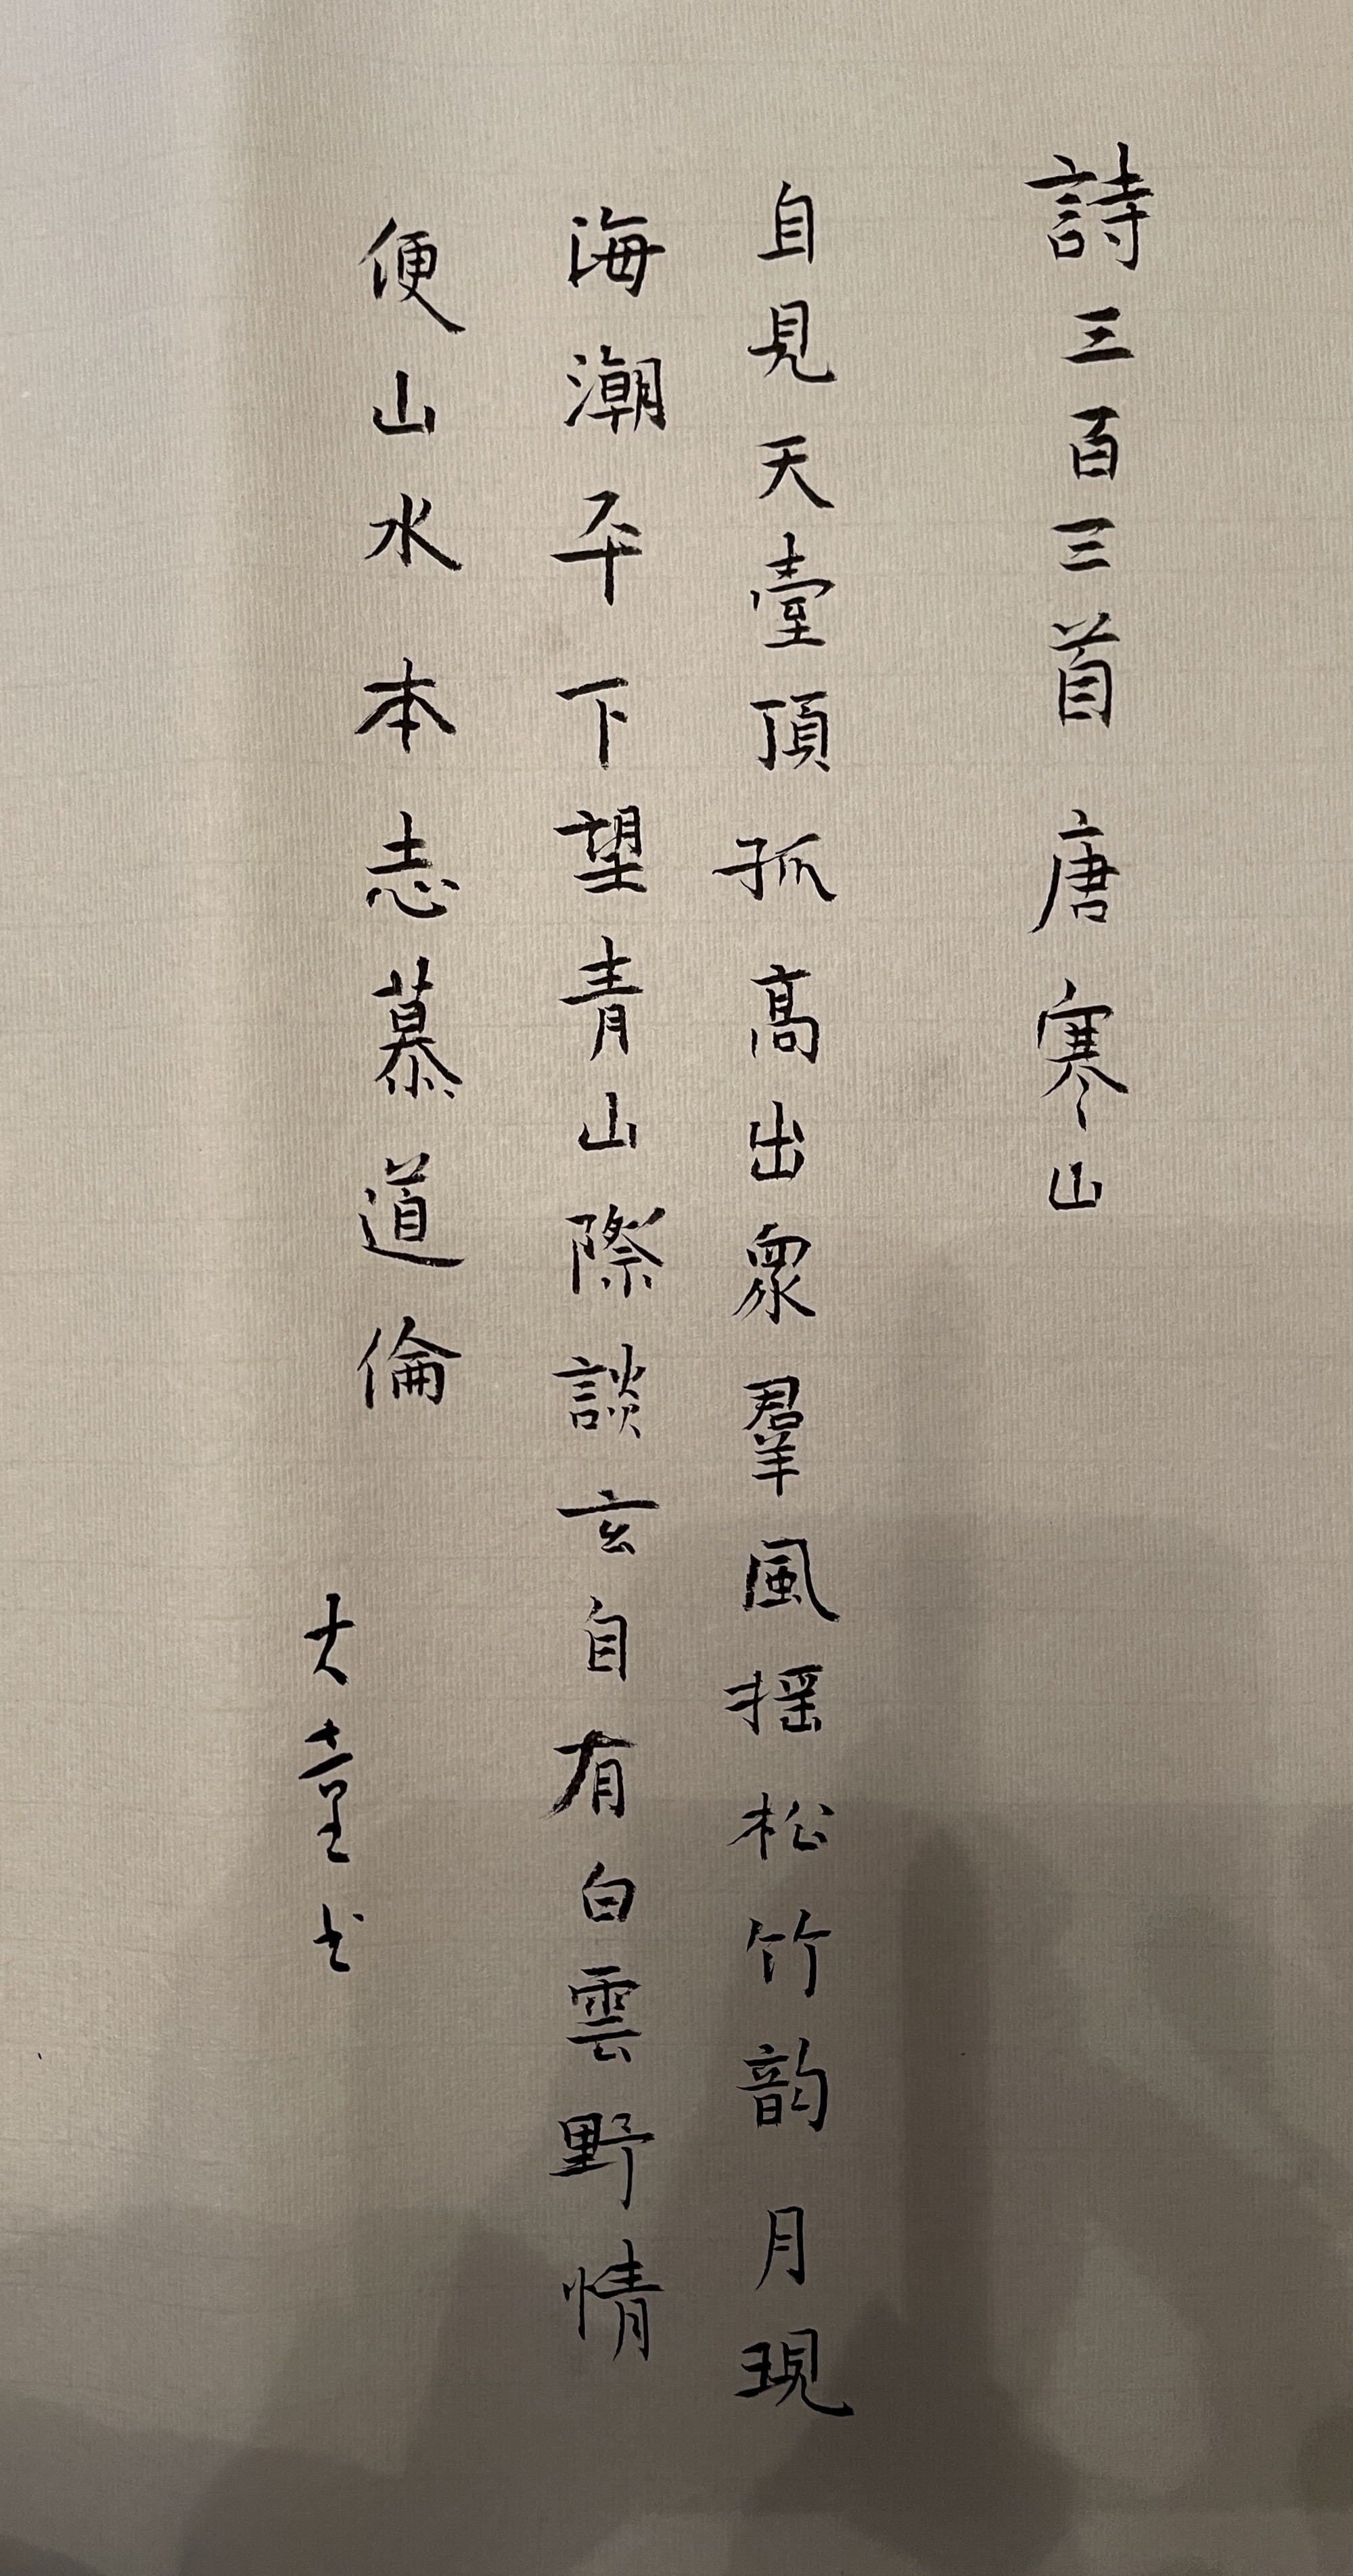 詩三百三首 唐 寒山
自見天臺頂孤高出眾羣風搖松竹韵月現
海潮平下望青山際談玄自有白雲野情
便山水本志慕道倫
大童书